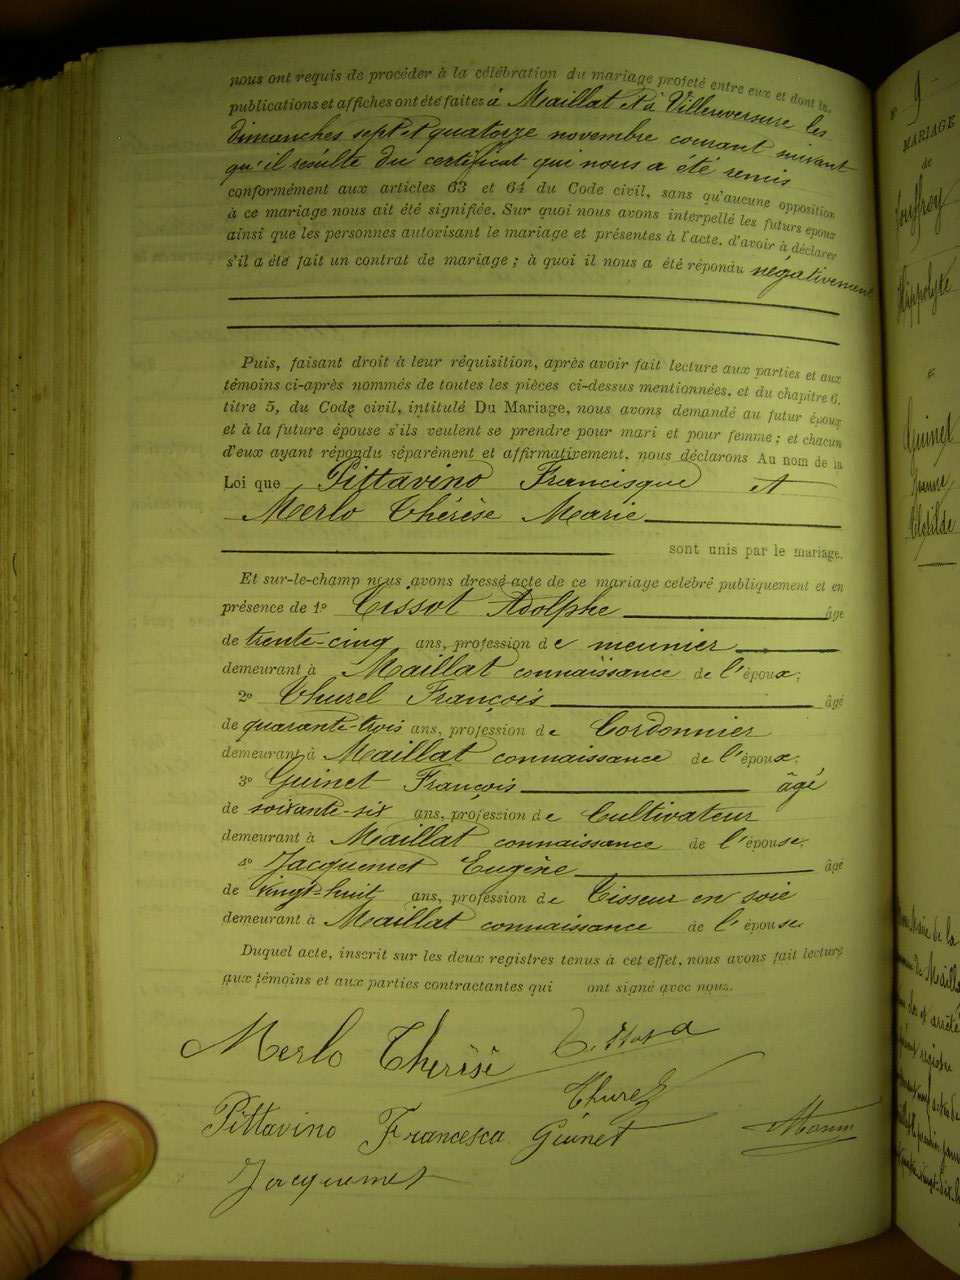 nous ont requis de procéder à la célébration du mariage projeté entre eux et dont les
publications et affiches ont été faites à Maillat et à Villeuversure les
dimanches sept et quatorze novembre courant suivant
qu'il résulte du certificat qui nous a été remis
conformément aux articles 63 et 64 du Code civil, sans qu'aucune opposition
à ce mariage nous ait été signifiée. Sur quoi nous avons interpellé les futurs époux
ainsi que les personnes autorisant le mariage et présentes à l'acte, d'avoir à déclarer
s'il a été fait un contrat de mariage ; à quoi il nous a été répondu négativement
Puis, faisant droit à leur réquisition, après avoir fait lecture aux parties et aux
témoins ci-après nommés de toutes les pièces ci-dessus mentionnées, et du chapitre 6,
titre 5, du Code civil, intitulé Du Mariage, nous avons demandé au futur époux
et à la future épouse s'ils veulent se prendre pour mari et pour femme ; et chacun
d'eux ayant répondu séparément et affirmativement, nous déclarons Au nom de la
Loi que Pittavino Francisque et
Merlo Thérèse Marie
sont unis par le mariage.
Et sur-le-champ nous avons dressé acte de ce mariage célébré publiquement et en
présence de 1º Tissot Adolphe âgé
de trente-cinq ans, profession de meunier
demeurant à Maillat connaissance de l'époux;
2º Thurel François âgé
de quarante-trois ans, profession de Cordonnier
demeurant à Maillat connaissance de l'époux;
3º Guinet François âgé
de soixante-six ans, profession de Cultivateur
demeurant à Maillat connaissance de l'épouse;
4º Jacquemet Eugène âgé
de vingt-huit ans, profession de Tisseur en soie
demeurant à Maillat connaissance de l'épouse.
Duquel acte, inscrit sur les deux registres tenus à cet effet, nous avons fait lecture
aux témoins et aux parties contractantes qui ont signé avec nous.
Merlo Thérèse
Thurel
Pittavino Francesca Guinet
Jacquemet
Nº 9
MARIAGE
de
Jouffroy
Hippolyte
et
Guinet
Jeanne
Clotilde
Maire de la
de Maillat